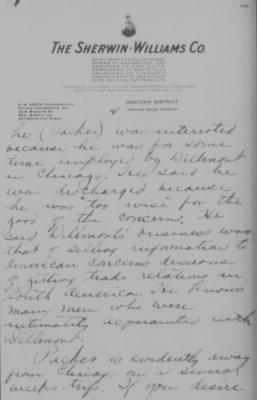 THE SHERWIN-WILLIAMS CO.
WESTERN DISTRICT
he (Packer) was interested
because he was for some
time employed by Dillmont
in Chicago. He said he
was discharged because
he was "too wise" for the
good of the concern. He
said Dillmont's business was
that of selling information to
American concerns desirous
of getting trade relations in
South America. He knows
many men who were
intimately acquainted with
Dillmont.
Packer is evidently away
from Chicago on a several
weeks trip. If you desire